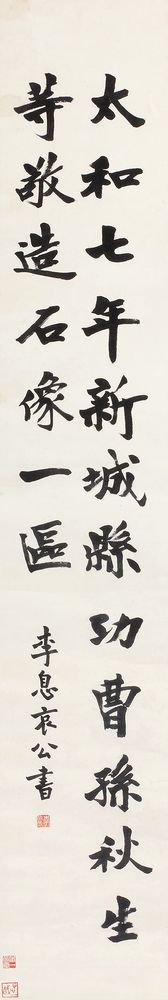 太和七年新城縣功曹孫秋生
等敬造石像一區
李息哀公書